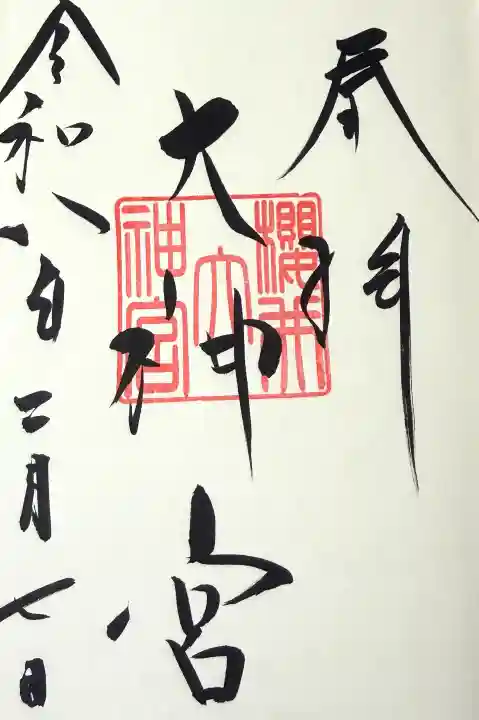 奉拝
大神宮
櫻井
大
神宮
令和八年二月七日